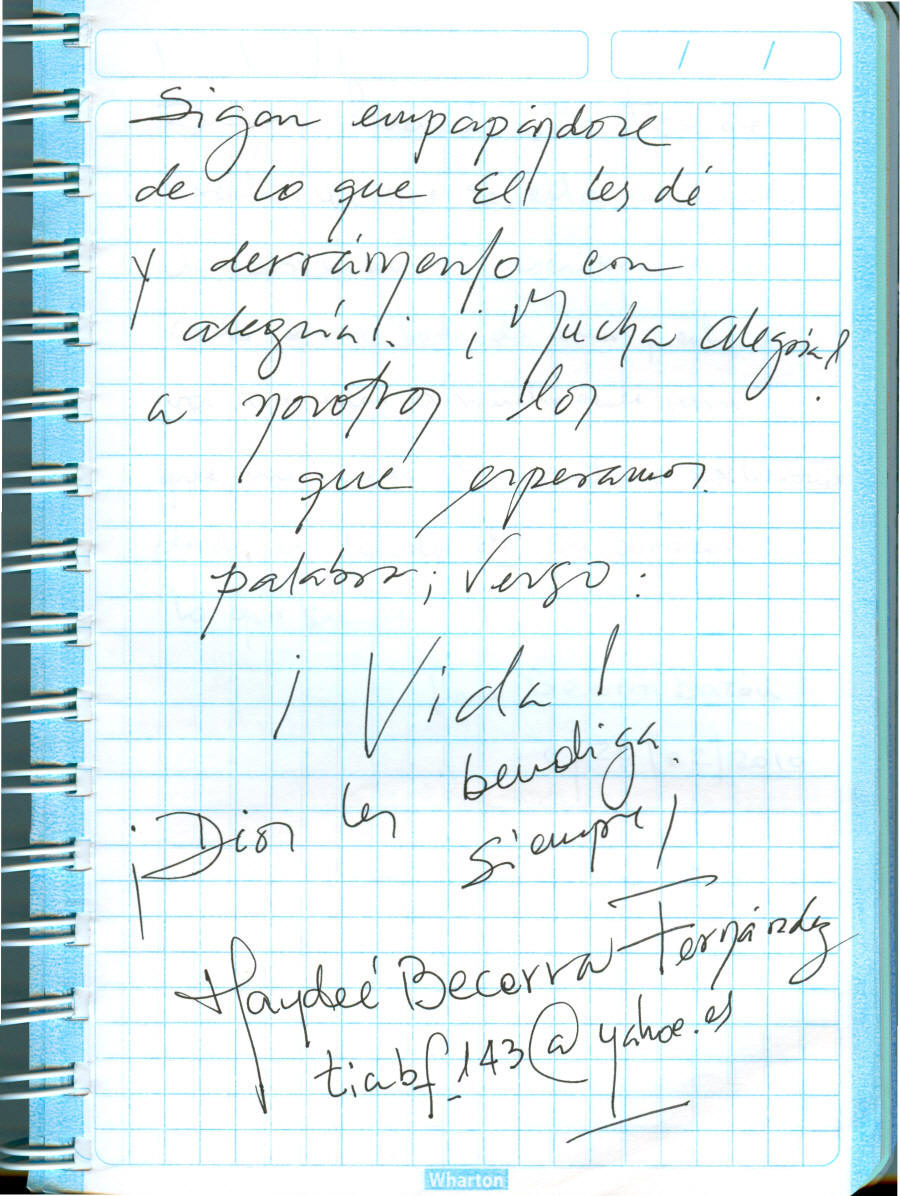 / /
Sigan empapándose
de lo que El les dé
y derrámenlo con
alegría!: ¡Mucha alegría!
a nosotros los
que esperamos
palabra; verso:
¡Vida!
¡Dios les bendiga
siempre!
Haydeé Becerra Fernández
tiabf_143@yahoo.es
Wharton